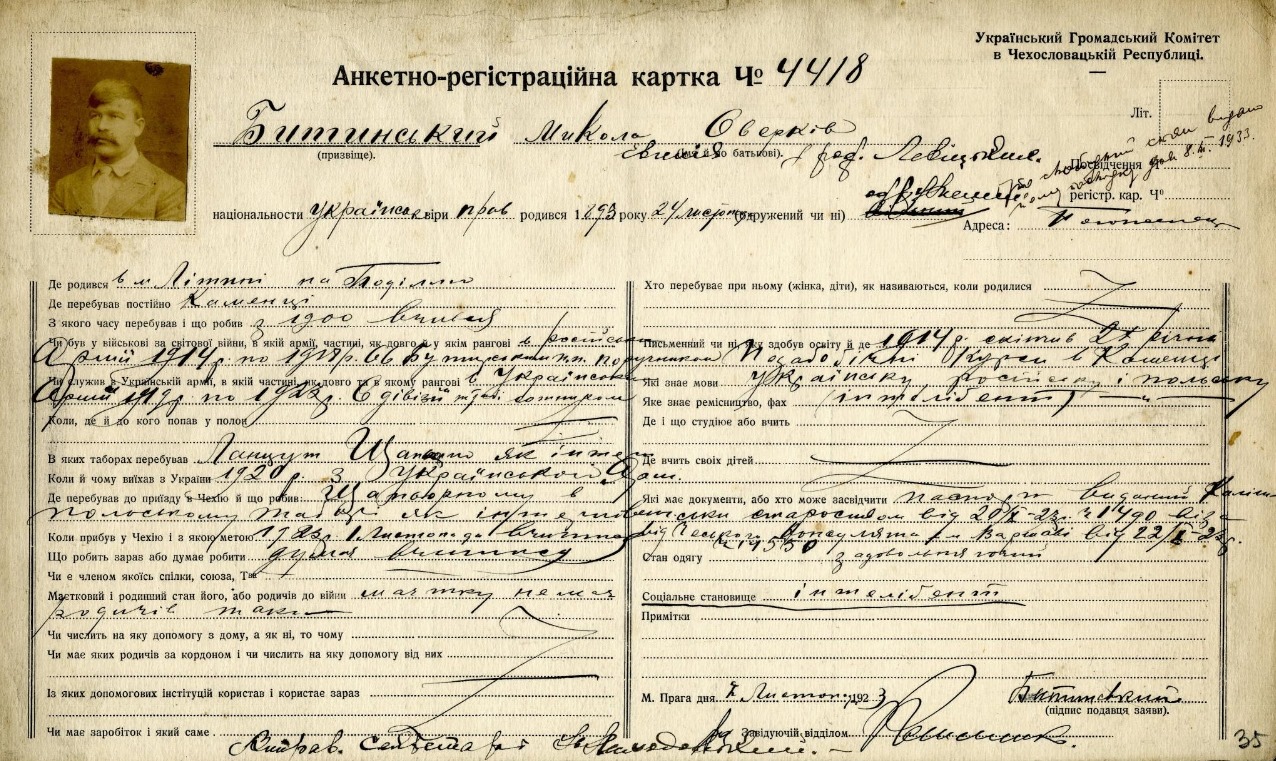 Український Громадський Комітет
в Чехословацькій Республиці.
Анкетно-реґістраційна картка Ч° 4418
Літ.
Битинський Микола Оверків
(призвіще). (імя й по батькові).
Посвідчення Ч°
реґістр. кар. Ч°
національности українськ віри прав родився 1893 року 24 листоп (одружений чи ні)
Адреса:
Де родився в м Літині на Поділлю
Де перебував постійно Каменці
З якого часу перебував і що робив з 1900 вчився
Чи був у військові за світової війни, в якій армії, частині, як довго і у якім рангові в російськ
Армії 1914 р. по 1918 р. 66 Бутирський п.п. поручником
Чи служив в Українській армії, в якій частині, як довго та в якому рангові в Українськ
Армії 1919 р. по 1922 р. 6 дівізії сотником
Коли, де й до кого попав у полон
В яких таборах перебував Ланцут Щапьорно як інтерн
Коли й чому виїхав з України 1920 р. з Української Арм.
Де перебував до приїзду в Чехію й що робив Щапьорному в
польському таборі як інтернов
Коли прибув у Чехію і з якою метою 1923 р. 1 Листопада
Що робить зараз або думає робити думає вчитись
Чи є членом якоїсь спілки, союза, Т-ва
Маєтковий і родинний стан його, або родичів до війни маєтку немає
родичів також
Чи числить на яку допомогу з дому, а як ні, то чому
Чи має яких родичів за кордоном і чи числить на яку допомогу від них
Із яких допомогових інстітуцій користав і користає зараз
Чи має заробіток і який саме
Хто перебуває при ньому (жінка, діти), як називаються, коли родилися
Письменний чи ні, яку здобув освіту й де 1914 р. скінчив 2х річні
Курси в Каменці
Які знає мови Українську, російську і польську
Яке знає ремісництво, фах (інтелігент)
Де і що студіює або вчить
Де вчить своїх дітей
Які має документи, або хто може засвідчити паспорт виданий Каліш
ським старостом від 20/X-23 р. № 1490 віза
від Чеського Консулята м Варшаві від 22/X-23 р.
Стан одягу задовольняючий
Соціальне становище інтелігент
Примітки
М. Прага дня 7 Листоп. 1923
Битинський
(підпис подавця заяви).
Завідуючий відділом
35